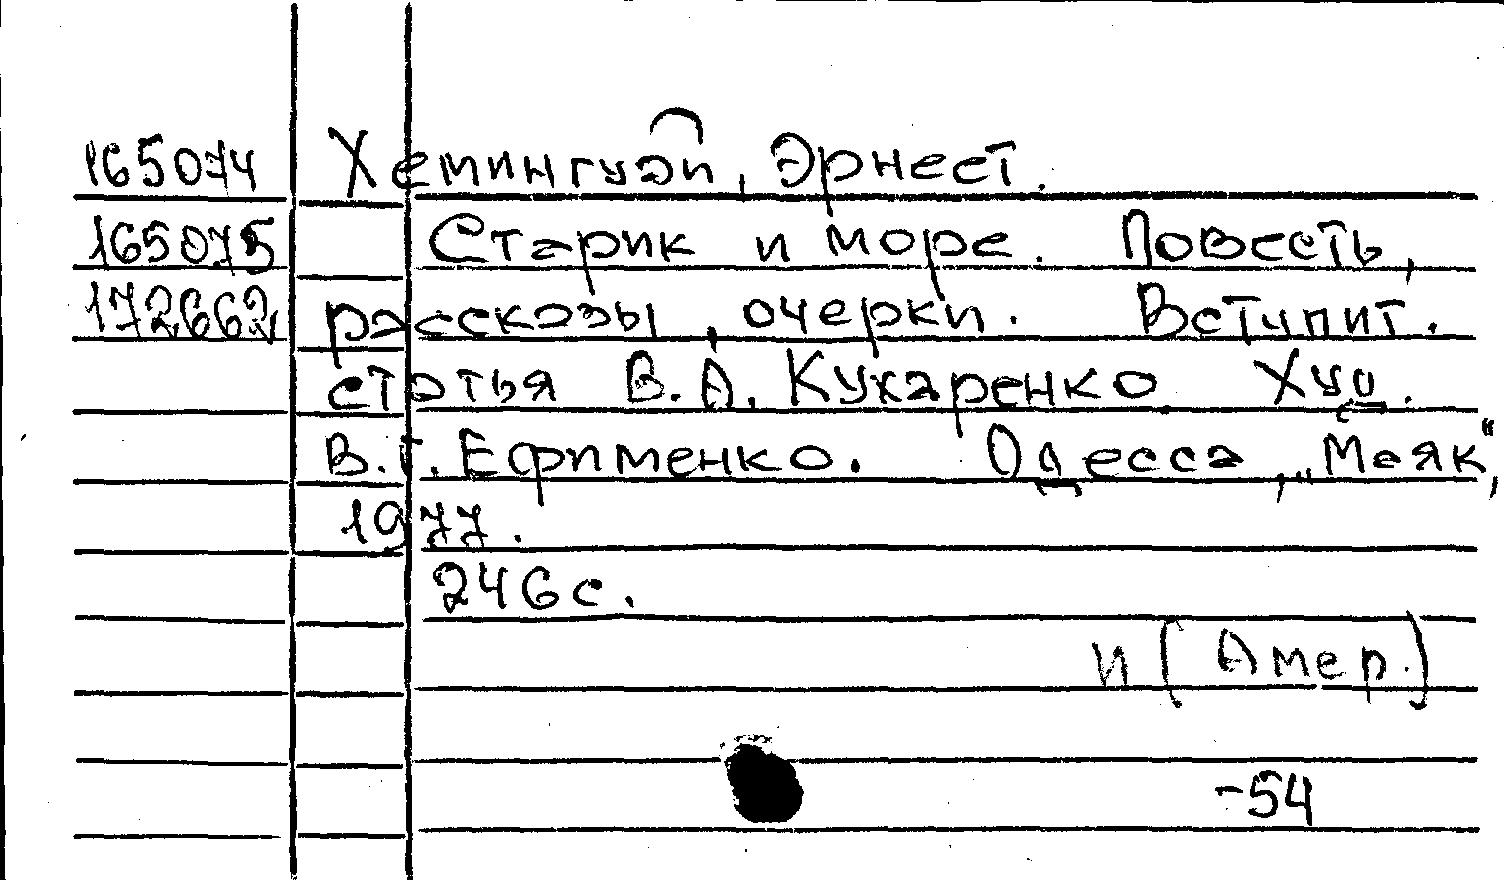 165074 Хемингуэй, Эрнест.
165075 Старик и море. Повесть,
172662, рассказы, очерки. Вступит.
статья В. А. Кухаренко. Худ.
В. Г. Ефименко. Одесса, „Маяк“,
1977.
246 с.
И (Амер.)
-54